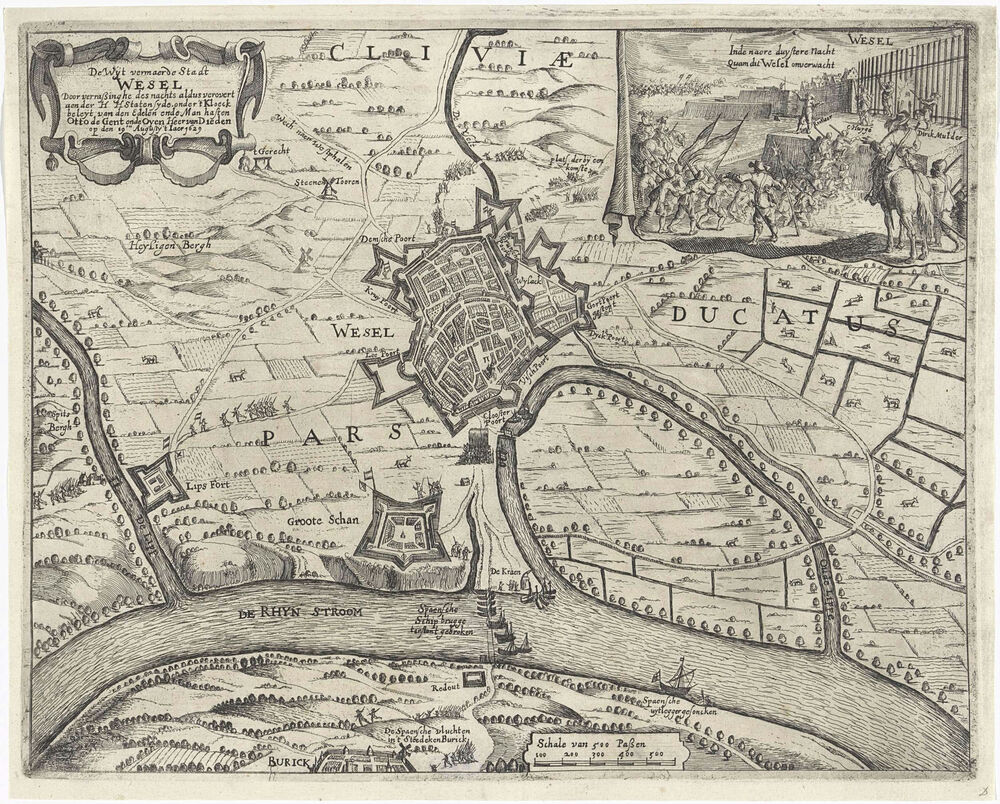 De Wyt vermaerde Stadt
WESEL
Door verrassinghe des nachts aldus verovert
aen der H H Staten syde, onder 't Kloeck
beleyt van den Edelen ende Man haften
Otto de Gent ende Oyen Heer van Dieden
op den 19en Augusty 't Iaer 1629
CLIVIÆ
WESEL
Inde naere duystere Nacht
Quam dit Wesel onverwacht
Dirck Mulder
't Gerecht
Steenen Tooren
Wech naer
plats der by een
Heyligen Bergh
Demsche Poort
Wylack
WESEL
DUCATUS
Dyck Poort
Clooster
Poort
PARS
Spits
Bergh
Lips Fort
Groote Schan
DE LIP
De Kraen
DE RHYN STROOM
Spaensche
Schip brugge
Oude Lippe
Redout
Spaensche
De Spaensche vluchten
in 't Stedeken Burick
BURICK
Schale van 500 Paßen
100 200 300 400 500